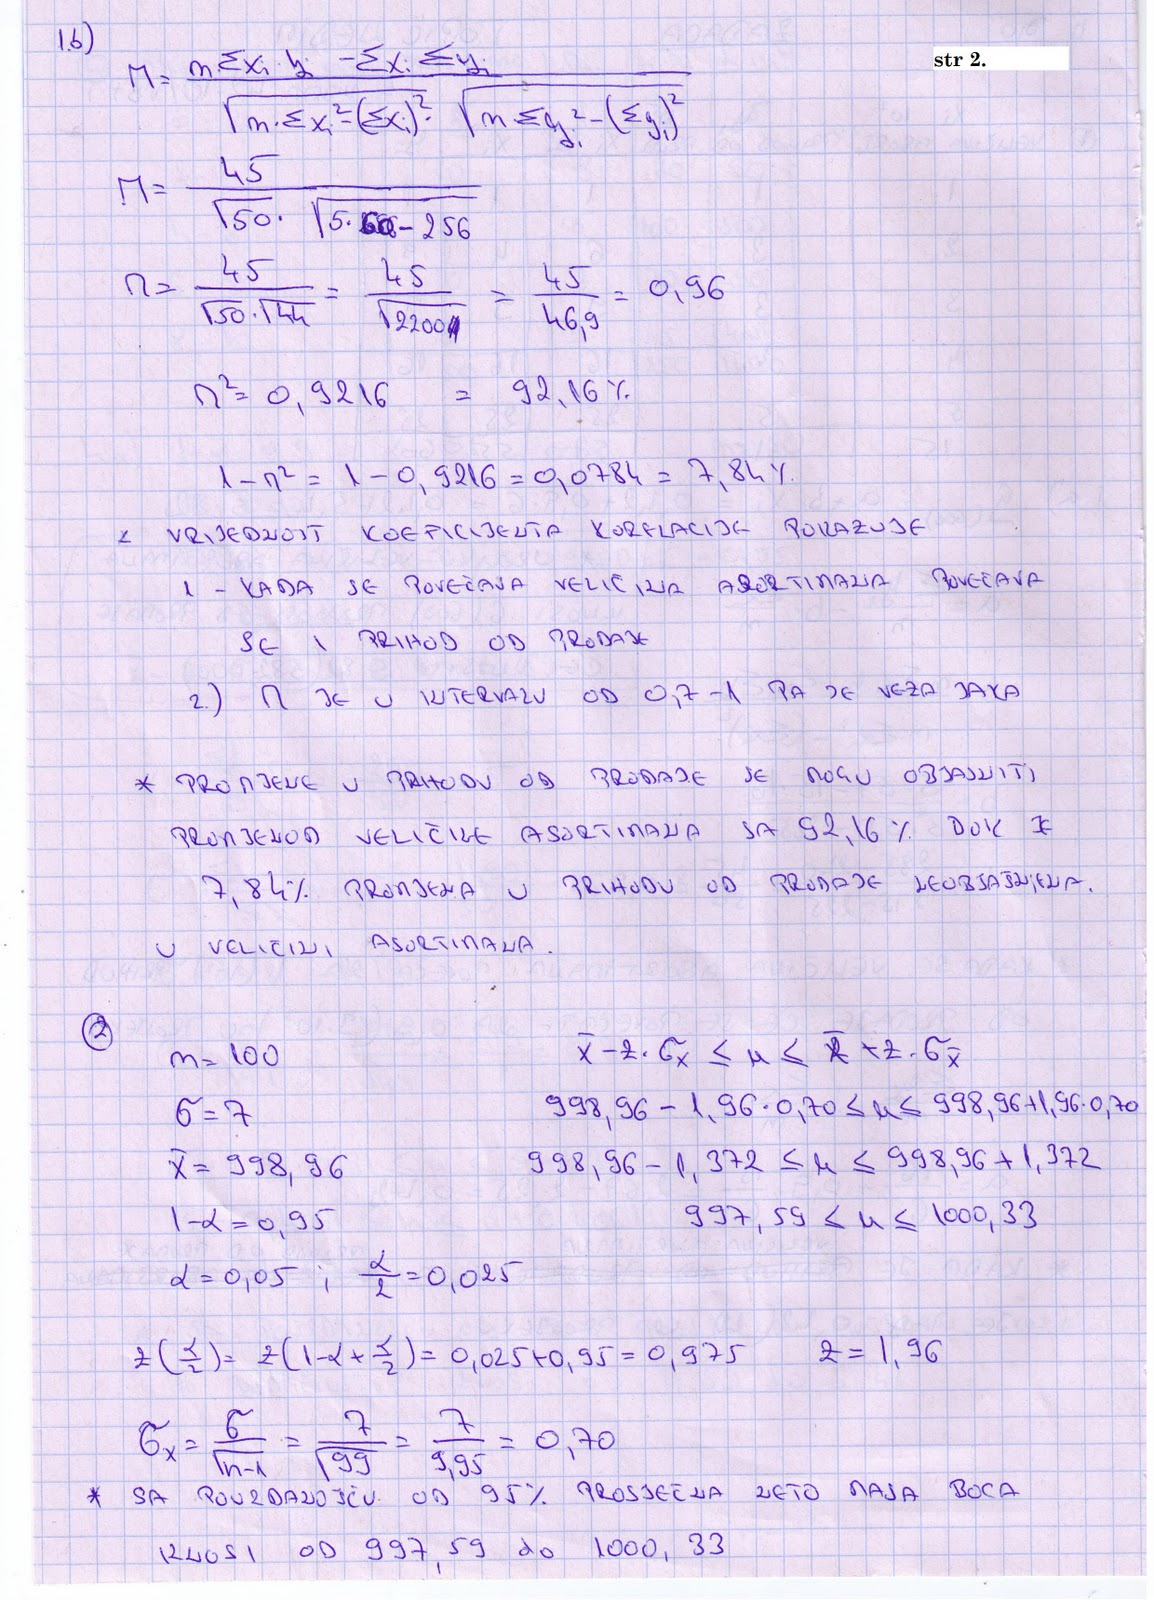 1.b)
str 2.
r = n Σxi yi - Σxi Σyi / √n·Σxi² - (Σxi)² · √n Σyi² - (Σyi)²
r = 45 / √50 · √5·60 - 256
r = 45 / √50·√44 = 45 / √2200 = 45 / 46,9 = 0,96
r² = 0,9216 = 92,16 %
1 - r² = 1 - 0,9216 = 0,0784 = 7,84 %
* VRIJEDNOST KOEFICIJENTA KORELACIJE POKAZUJE
1 - KADA SE POVEĆAVA VELIČINA ASORTIMANA POVEĆAVA
SE I PRIHOD OD PRODAJE
2.) r JE U INTERVALU OD 0,7 - 1 PA JE VEZA JAKA
* PROMJENE U PRIHODU OD PRODAJE SE MOGU OBJASNITI
PROMJENOM VELIČINE ASORTIMANA SA 92,16 % DOK JE
7,84 % PROMJENA U PRIHODU OD PRODAJE NEOBJAŠNJENA
U VELIČINI ASORTIMANA.
2
n = 100
x̄ - z·σx̄ ≤ μ ≤ x̄ + z·σx̄
σ = 7
998,96 - 1,96·0,70 ≤ μ ≤ 998,96 + 1,96·0,70
x̄ = 998,96
998,96 - 1,372 ≤ μ ≤ 998,96 + 1,372
1-α = 0,95
997,59 ≤ μ ≤ 1000,33
α = 0,05 ; α/2 = 0,025
z(α/2) = z(1-α+α/2) = 0,025+0,95 = 0,975 z = 1,96
σx = σ/√n-1 = 7/√99 = 7/9,95 = 0,70
* SA POUZDANOŠĆU OD 95% PROSJEČNA NETO MASA BOCA
IZNOSI OD 997,59 do 1000,33